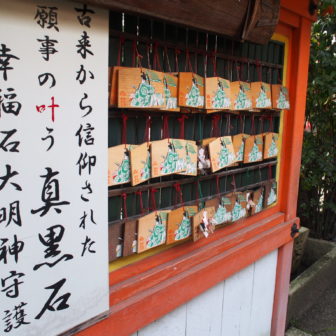 古来から信仰された
願事の叶う真黒石
幸福石大明神守護